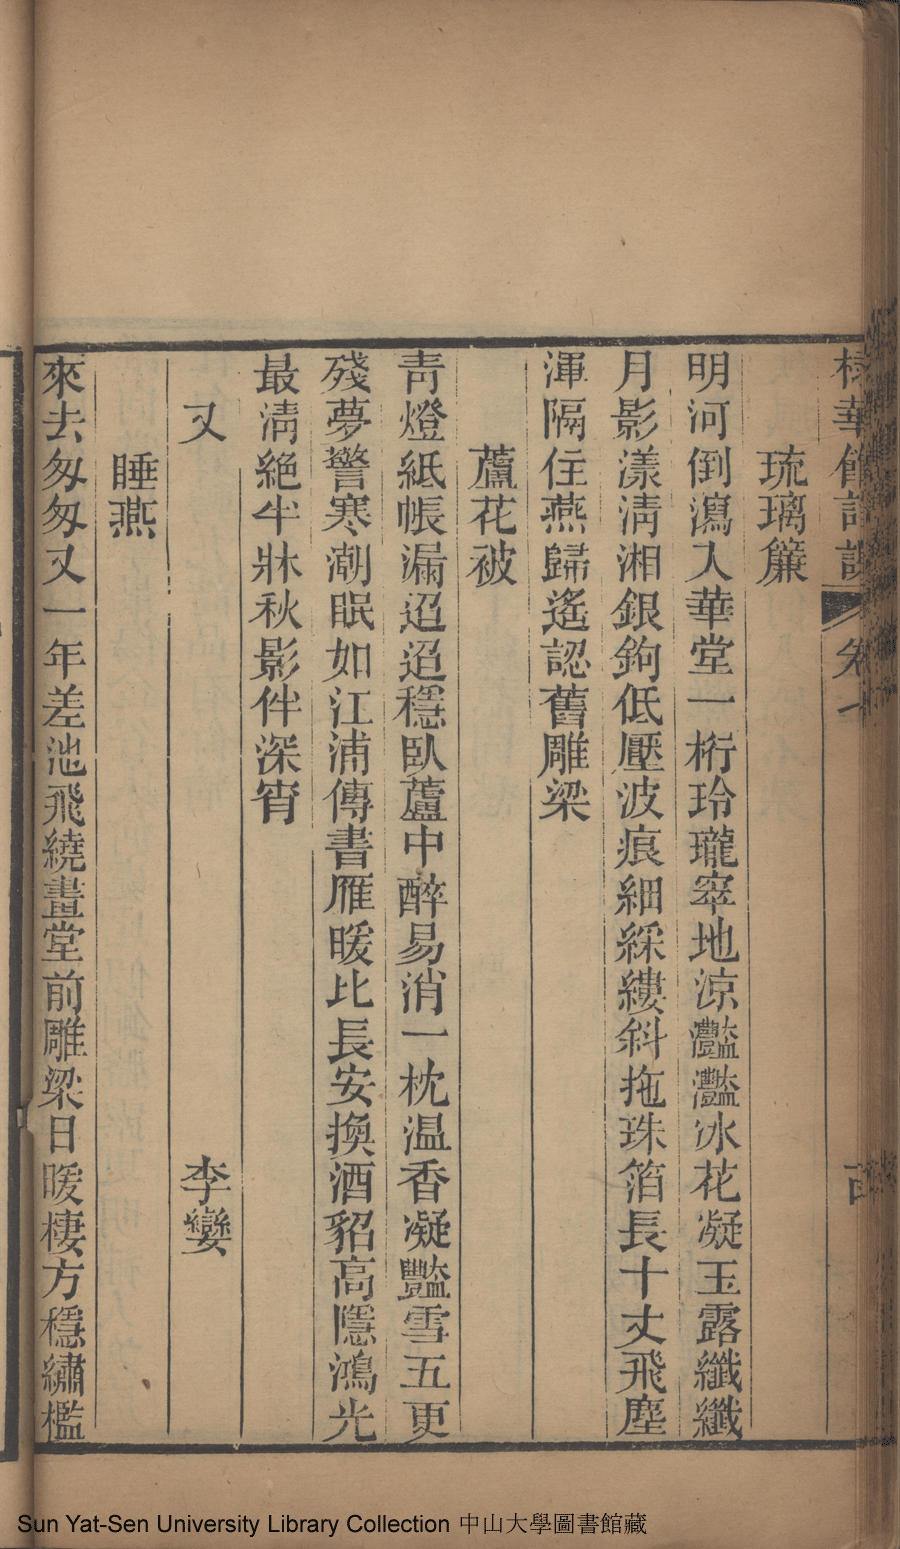 棣華館詩課 卷七
琉璃簾
明河倒瀉入華堂一桁玲瓏窣地涼灩灩冰花凝玉露纖纖
月影漾清湘銀鉤低壓波痕細綵縷斜拖珠箔長十丈飛塵
渾隔住燕歸遙認舊雕梁
蘆花被
青燈紙帳漏迢迢穩臥蘆中醉易消一枕温香凝豔雪五更
殘夢警寒潮眠如江浦傳書雁暖比長安換酒貂高隱鴻光
最清絕半牀秋影伴深宵
又 李孌
睡燕
來去匆匆又一年差池飛繞畫堂前雕梁日暖棲方穩繡檻
Sun Yat-Sen University Library Collection 中山大學圖書館藏